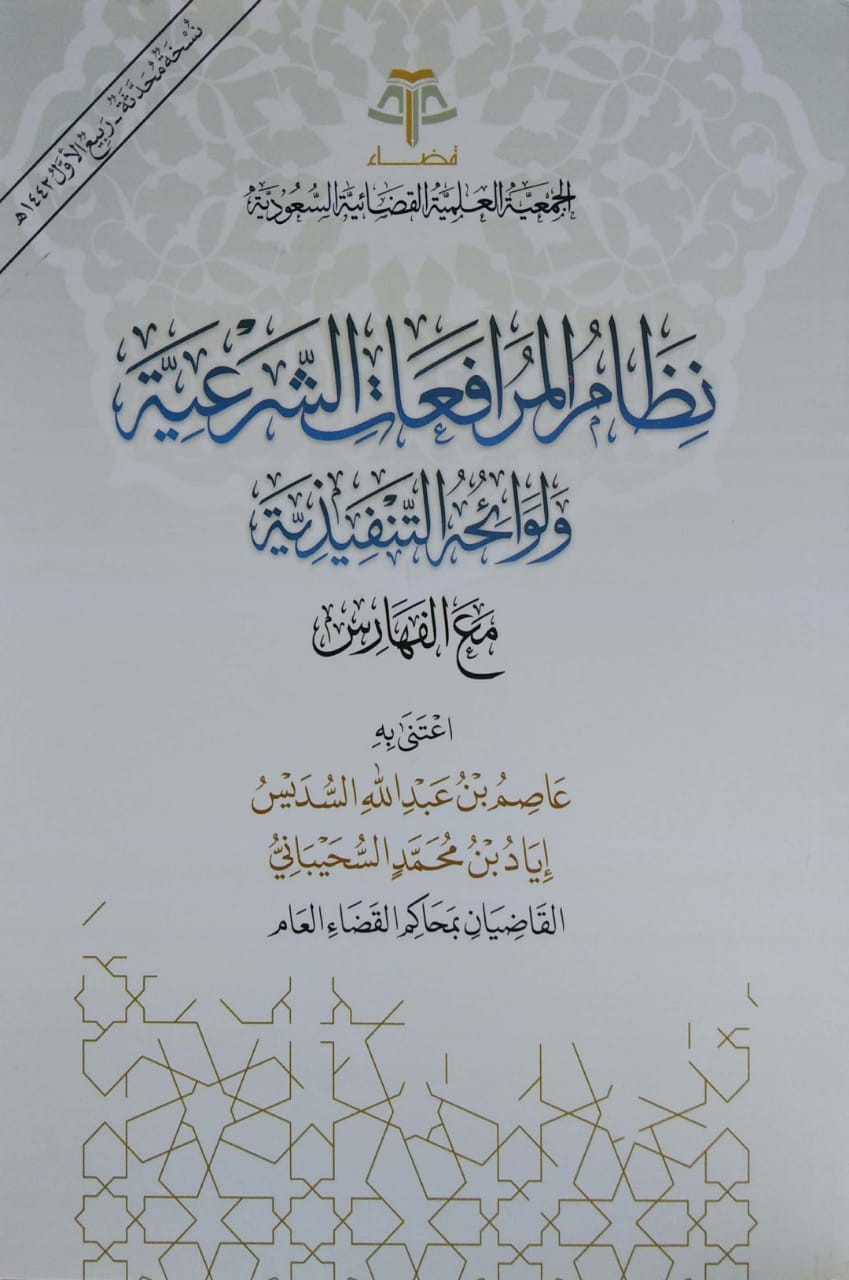 نُسْخَةٌ مُحَدَّثَةٌ - رَبِيعٌ الأَوَّلُ ١٤٤٢هـ
قضاء
الجَمْعِيَّةُ العِلْمِيَّةُ القَضَائِيَّةُ السُّعُودِيَّةُ
نِظَامُ المُرَافَعَاتِ الشَّرْعِيَّةِ
وَلَوَائِحُهُ التَّنْفِيذِيَّةِ
مَعَ الفَهَارِسِ
اعْتَنَى بِهِ
عَاصِمُ بْنُ عَبْدِ اللهِ السُّدَيْسُ
إِيَادُ بْنُ مُحَمَّدٍ السُّحَيْبَانِيُّ
القَاضِيَانِ بِمَحَاكِمِ القَضَاءِ العَام